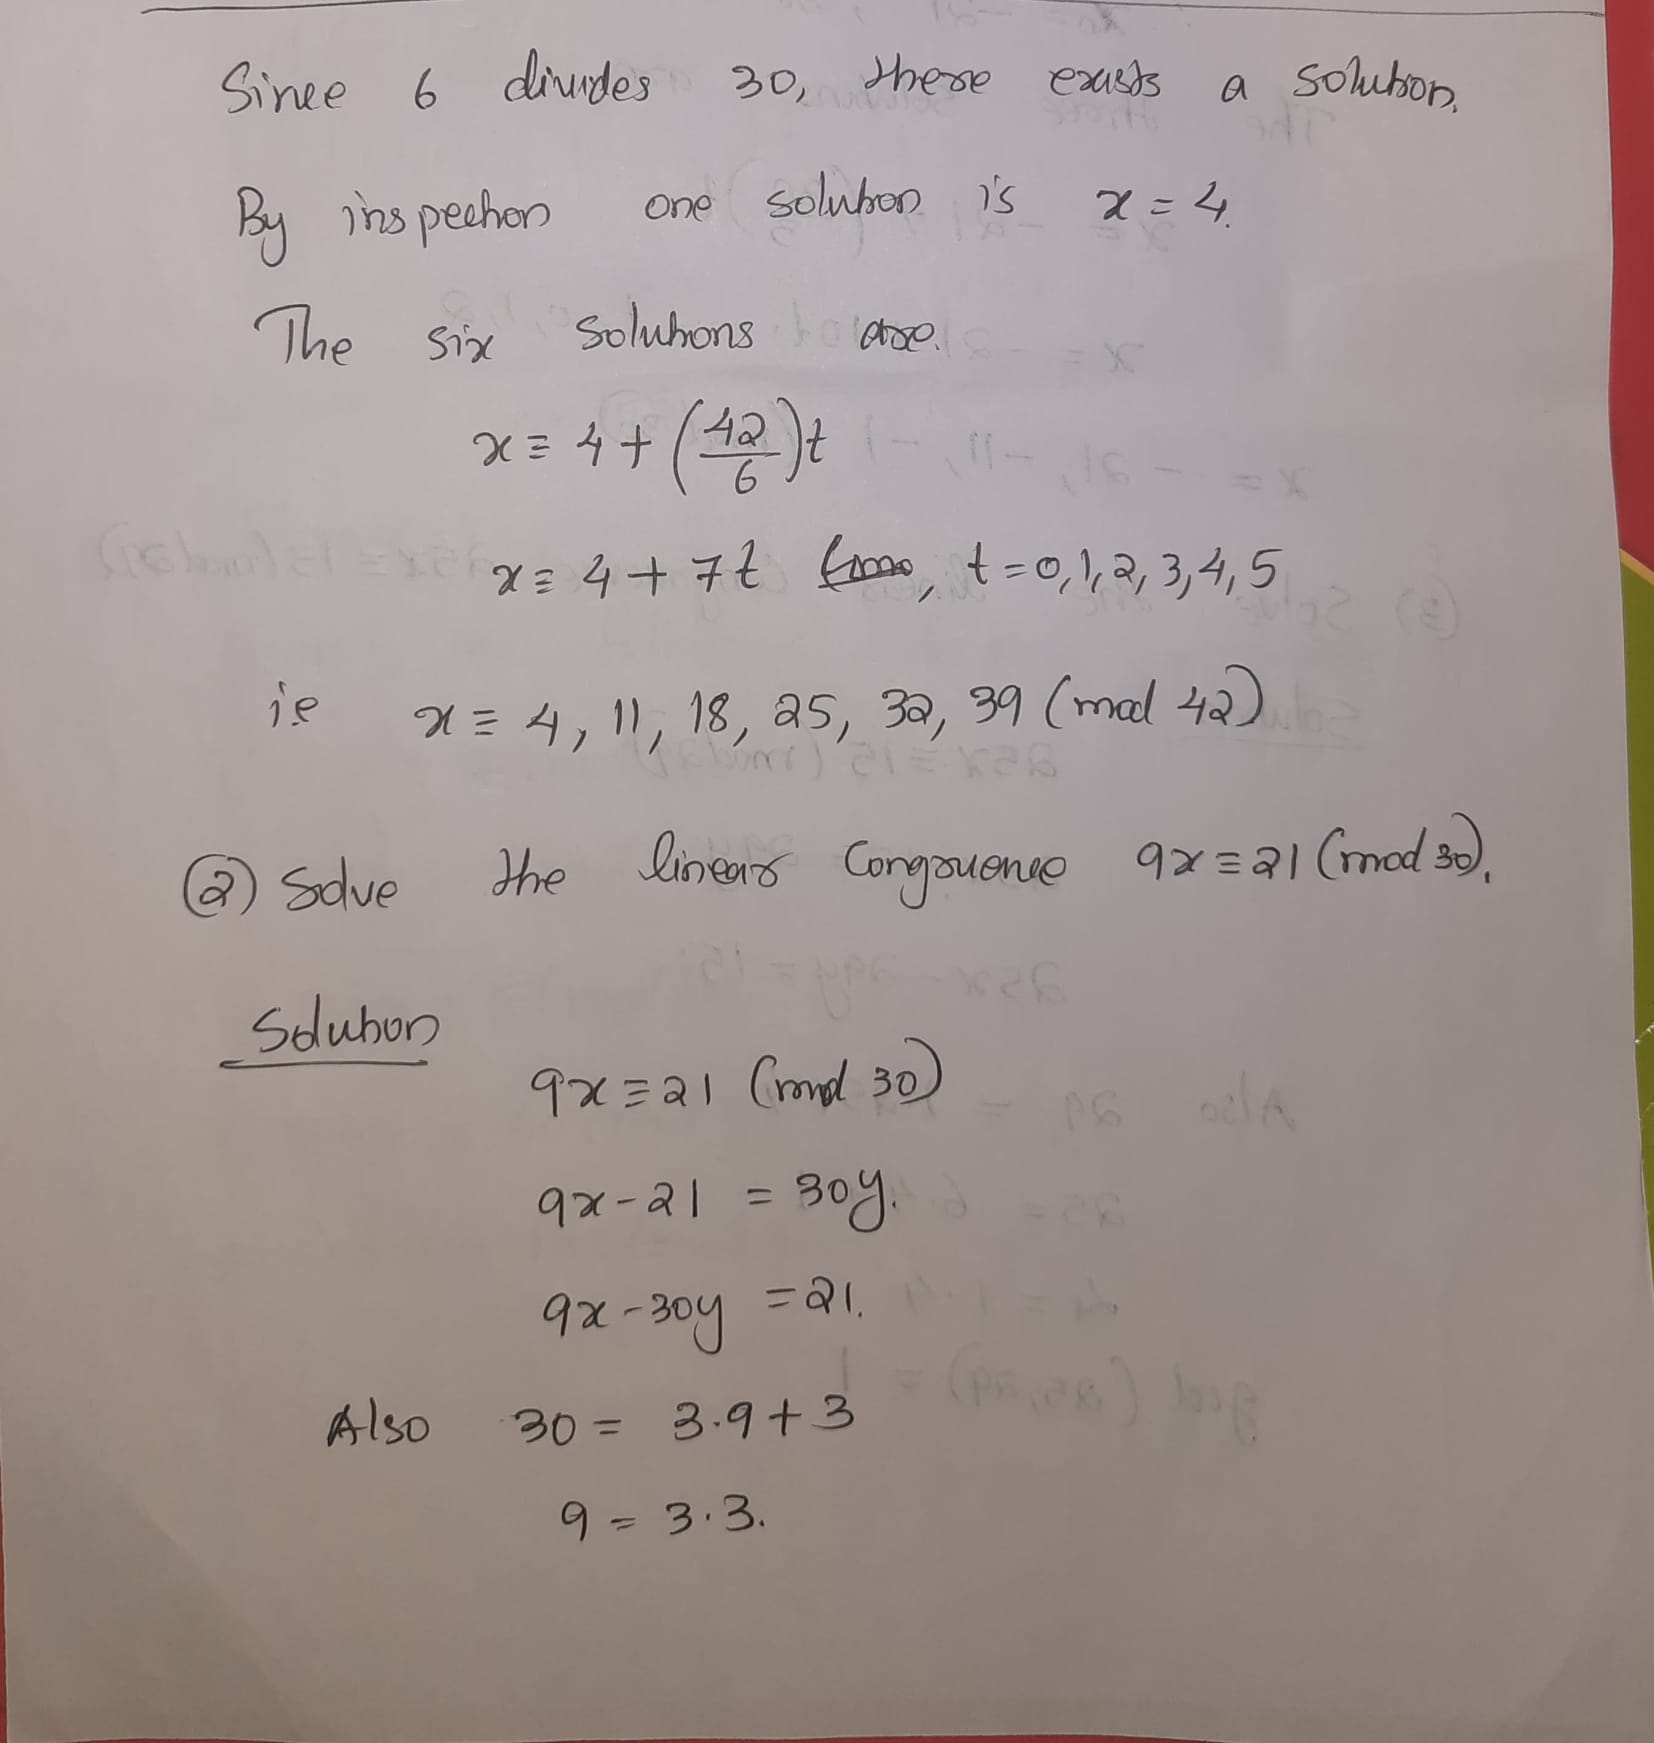 Since 6 divides 30, there exists a solution.
By inspection one solution is x = 4.
The six solutions are.
x ≡ 4 + (42/6)t
x ≡ 4 + 7t , t = 0, 1, 2, 3, 4, 5
ie x ≡ 4, 11, 18, 25, 32, 39 (mod 42)
② Solve the linear Congruence 9x ≡ 21 (mod 30).
Solution
9x ≡ 21 (mod 30)
9x - 21 = 30y.
9x - 30y = 21.
Also 30 = 3.9 + 3
9 = 3.3.